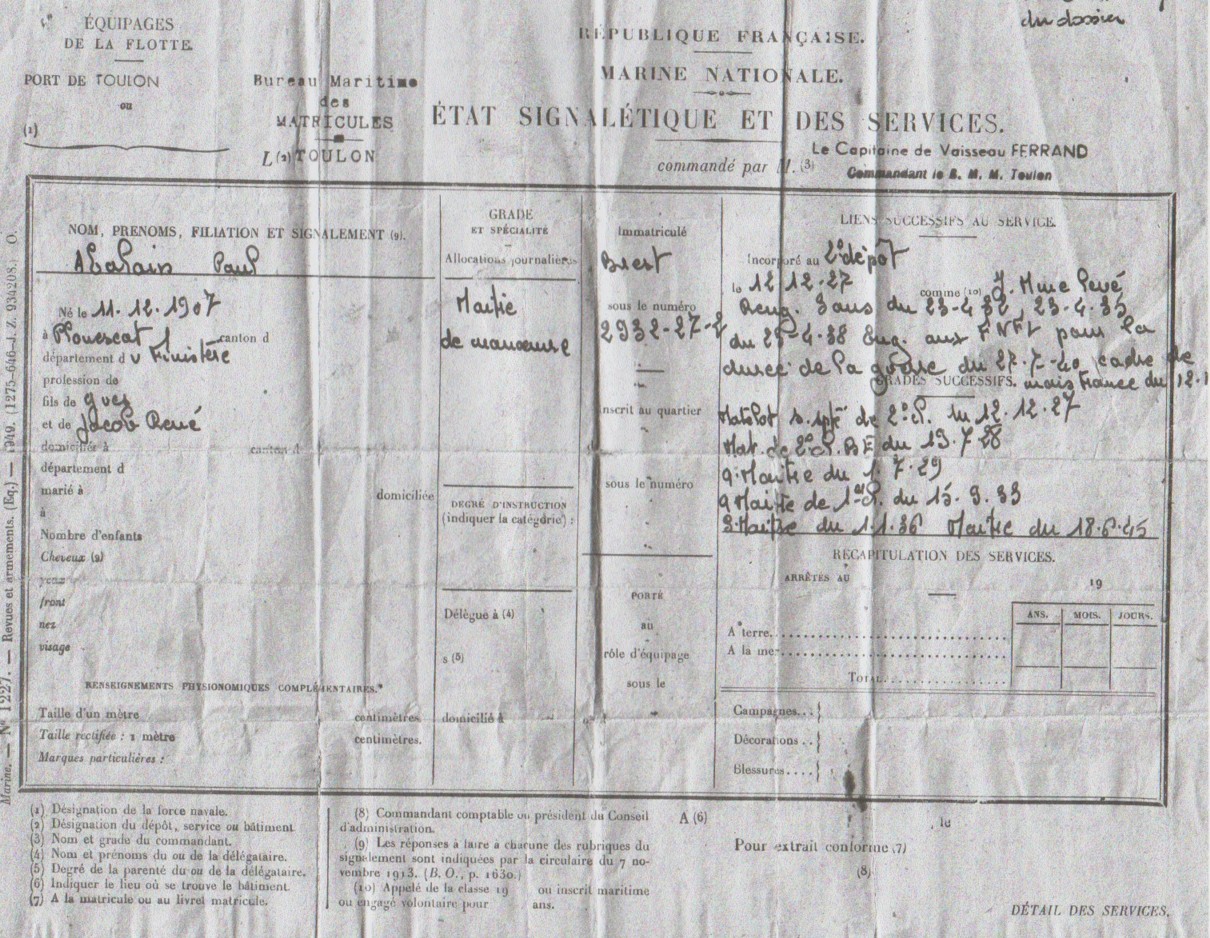 du dossier
ÉQUIPAGES
DE LA FLOTTE.
PORT DE TOULON
ou
(1)
Bureau Maritime
des
MATRICULES
L(2) TOULON
RÉPUBLIQUE FRANÇAISE.
MARINE NATIONALE.
ÉTAT SIGNALÉTIQUE ET DES SERVICES.
commandé par M. (3)
Le Capitaine de Vaisseau FERRAND
Commandant le B. M. M. Toulon
NOM, PRENOMS, FILIATION ET SIGNALEMENT (9).
Paul
Né le 11.12.1907
à Plouescat canton d
département du Finistère
profession de
fils de Yves
et de Jacob René
domiciliée à canton d
département d
marié à domiciliée
à
Nombre d'enfants
Cheveux (9)
yeux
front
nez
visage
RENSEIGNEMENTS PHYSIONOMIQUES COMPLÉMENTAIRES.
Taille d'un mètre centimètres
Taille rectifiée : 1 mètre centimètres.
Marques particulières :
GRADE
ET SPÉCIALITÉ
Allocations journalières
Maitre
de manœuvre
DEGRÉ D'INSTRUCTION
(indiquer la catégorie) :
Délégue à (4)
s (5)
domicilié à
Immatriculé
Brest
sous le numéro
2932-27-2
Inscrit au quartier
sous le numéro
PORTÉ
au
rôle d'équipage
sous le
LIENS SUCCESSIFS AU SERVICE.
Incorporé au 2e dépôt
le 12 12.27 comme (10) J. Mme Levé
Reng. 3 ans du 23-4 32, 23.4.35
du 23-4.38 Eng. aux FNFL pour la
durée de la guerre du 27.7.40 cadre de
GRADES SUCCESSIFS. mais France du 12.1
Matelot s. spté de 2e cl. du 12.12.27
Mat. de 2e cl. BE du 13.7 28
q. Maitre du 1. 7.29
q Maitre de 1re cl. du 15.9.33
S. Maitre du 1.1.36 Maitre du 18.6.45
RECAPITULATION DES SERVICES.
ARRÊTÉS AU 19
ANS. MOIS. JOURS.
A terre
A la mer
Total
Campagnes..}
Décorations..}
Blessures....}
Marine. — N° 1227. — Revues et armements. (Eq.) — 1949. (1275-646—J. Z. 934208.) O.
(1) Désignation de la force navale.
(2) Désignation du dépôt, service ou bâtiment
(3) Nom et grade du commandant.
(4) Nom et prénoms du ou de la délégataire.
(5) Degré de la parenté du ou de la délégataire.
(6) Indiquer le lieu où se trouve le bâtiment.
(7) A la matricule ou au livret matricule.
(8) Commandant comptable ou président du Conseil
d'administration.
(9) Les réponses à faire à chacune des rubriques du
signalement sont indiquées par la circulaire du 7 no-
vembre 1913. (B. O., p. 1630.)
(10) Appelé de la classe 19 ou inscrit maritime
ou engagé volontaire pour ans.
A (6) , le
Pour extrait conforme (7)
(8)
DÉTAIL DES SERVICES.